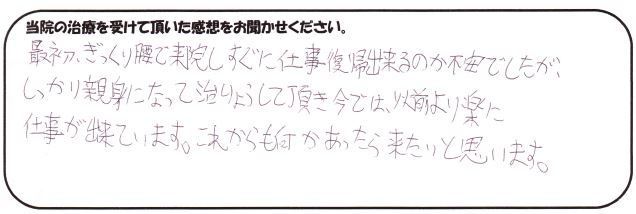 当院の治療を受けて頂いた感想をお聞かせください。
最初、ぎっくり腰で来院しすぐに仕事復帰出来るのか不安でしたが、
しっかり親身になって治りょうして頂き今では、以前より楽に
仕事が出来ています。これからも何かあったら来たいと思います。